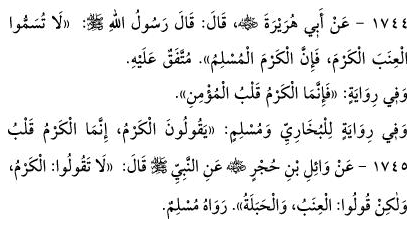 ١٧٤٤ - عَنْ أَبِي هُرَيْرَةَ ﵁، قَالَ: قَالَ رَسُولُ اللهِ ﷺ: «لَا تُسَمُّوا
الْعِنَبَ الْكَرْمَ، فَإِنَّ الْكَرْمَ الْمُسْلِمُ». مُتَّفَقٌ عَلَيْهِ.
وَفِي رِوَايَةٍ: «فَإِنَّمَا الْكَرْمُ قَلْبُ الْمُؤْمِنِ».
وَفِي رِوَايَةٍ لِلْبُخَارِيِّ وَمُسْلِمٍ: «يَقُولُونَ الْكَرْمُ، إِنَّمَا الْكَرْمُ قَلْبُ
١٧٤٥ - عَنْ وَائِلِ بْنِ حُجْرٍ ﵁ عَنِ النَّبِيِّ ﷺ قَالَ: «لَا تَقُولُوا: الْكَرْمُ،
وَلٰكِنْ قُولُوا: الْعِنَبُ، وَالْحَبَلَةُ». رَوَاهُ مُسْلِمٌ.